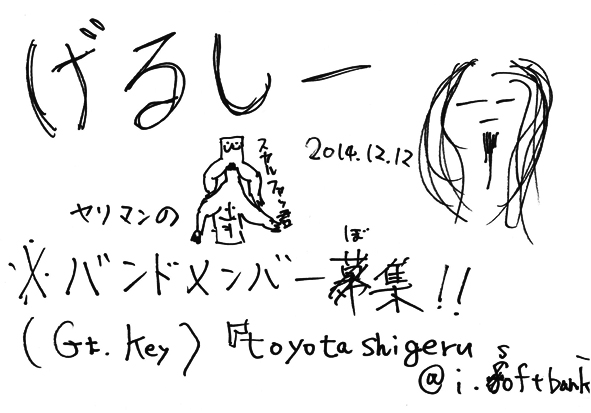 げるしー
2014.12.12
ヤリマンの
※バンドメンバー募集!!
ぼ
(Gt. Key) toyotashigeru
@i.softbank